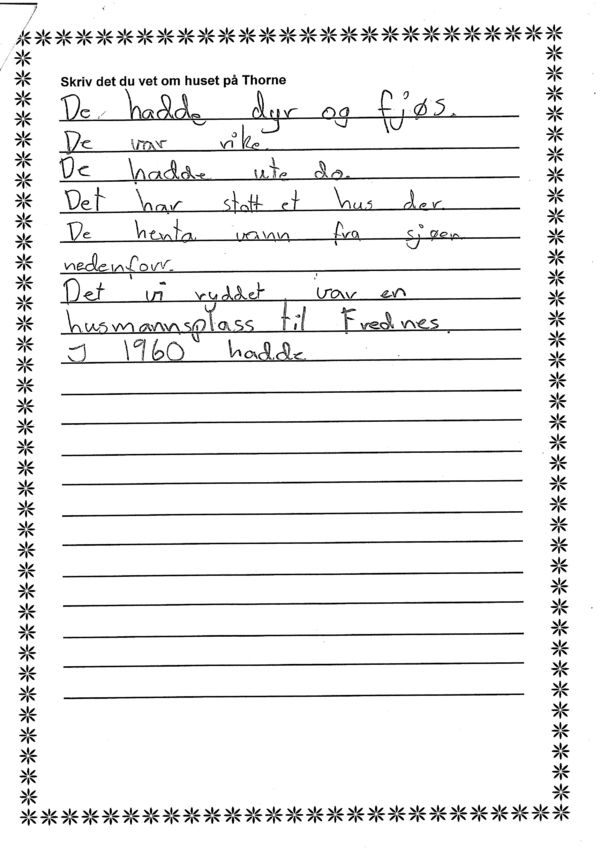 Skriv det du vet om huset på Thorne
De hadde dyr og fjøs.
De var rike.
De hadde ute do.
Det har stått et hus der.
De henta vann fra sjøen
nedenforr.
Det vi ryddet var en
husmannsplass til Frednes.
I 1960 hadde